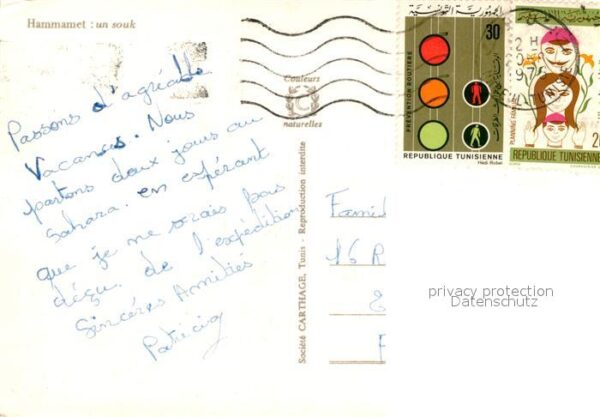 Hammamet : un souk
Couleurs
naturelles
Passons d'agréable
Vacances. Nous
partons deux jours au
Sahara. en espérant
que je ne serais pas
déçu de l'expédition
Sincères Amitiés
Société CARTHAGE, Tunis - Reproduction interdite
30
PRÉVENTION ROUTIÈRE
REPUBLIQUE TUNISIENNE
الجمهورية التونسية
PLANNING
REPUBLIQUE TUNISIENNE
Famil
16 R
privacy protection
Datenschutz